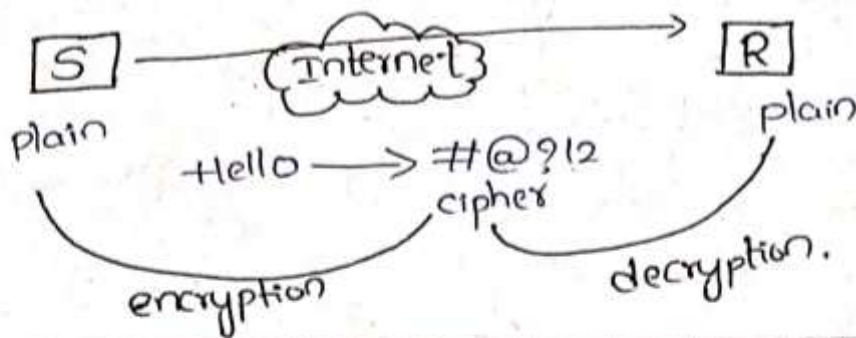 S Internet R
plain plain
Hello → #@?12
cipher
encryption decryption.